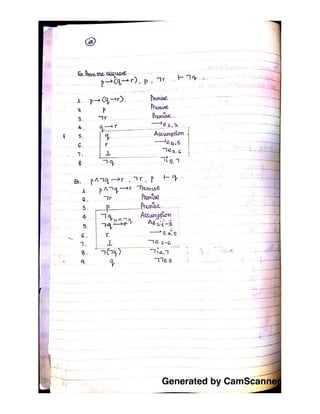 Ex. Prove the sequent.
p→(q→r), p, ¬r ⊢ ¬q
1. p→(q→r) Premise
2. p Premise
3. ¬r Premise.
4. q→r →e1,2
5. q Assumption
6. r →e4,5
7. ⊥ ¬e3,6
8. ¬q ¬i5,7
Ex. p∧¬q→r, ¬r, p ⊢ q
1. p∧¬q→r Premise
2. ¬r Premise
3. p Premise
4. ¬q Assumption
5. p∧¬q
6. r →e
7. ⊥ ¬e
8. ¬(¬q) ¬i
9. q ¬¬e8
Generated by CamScanner